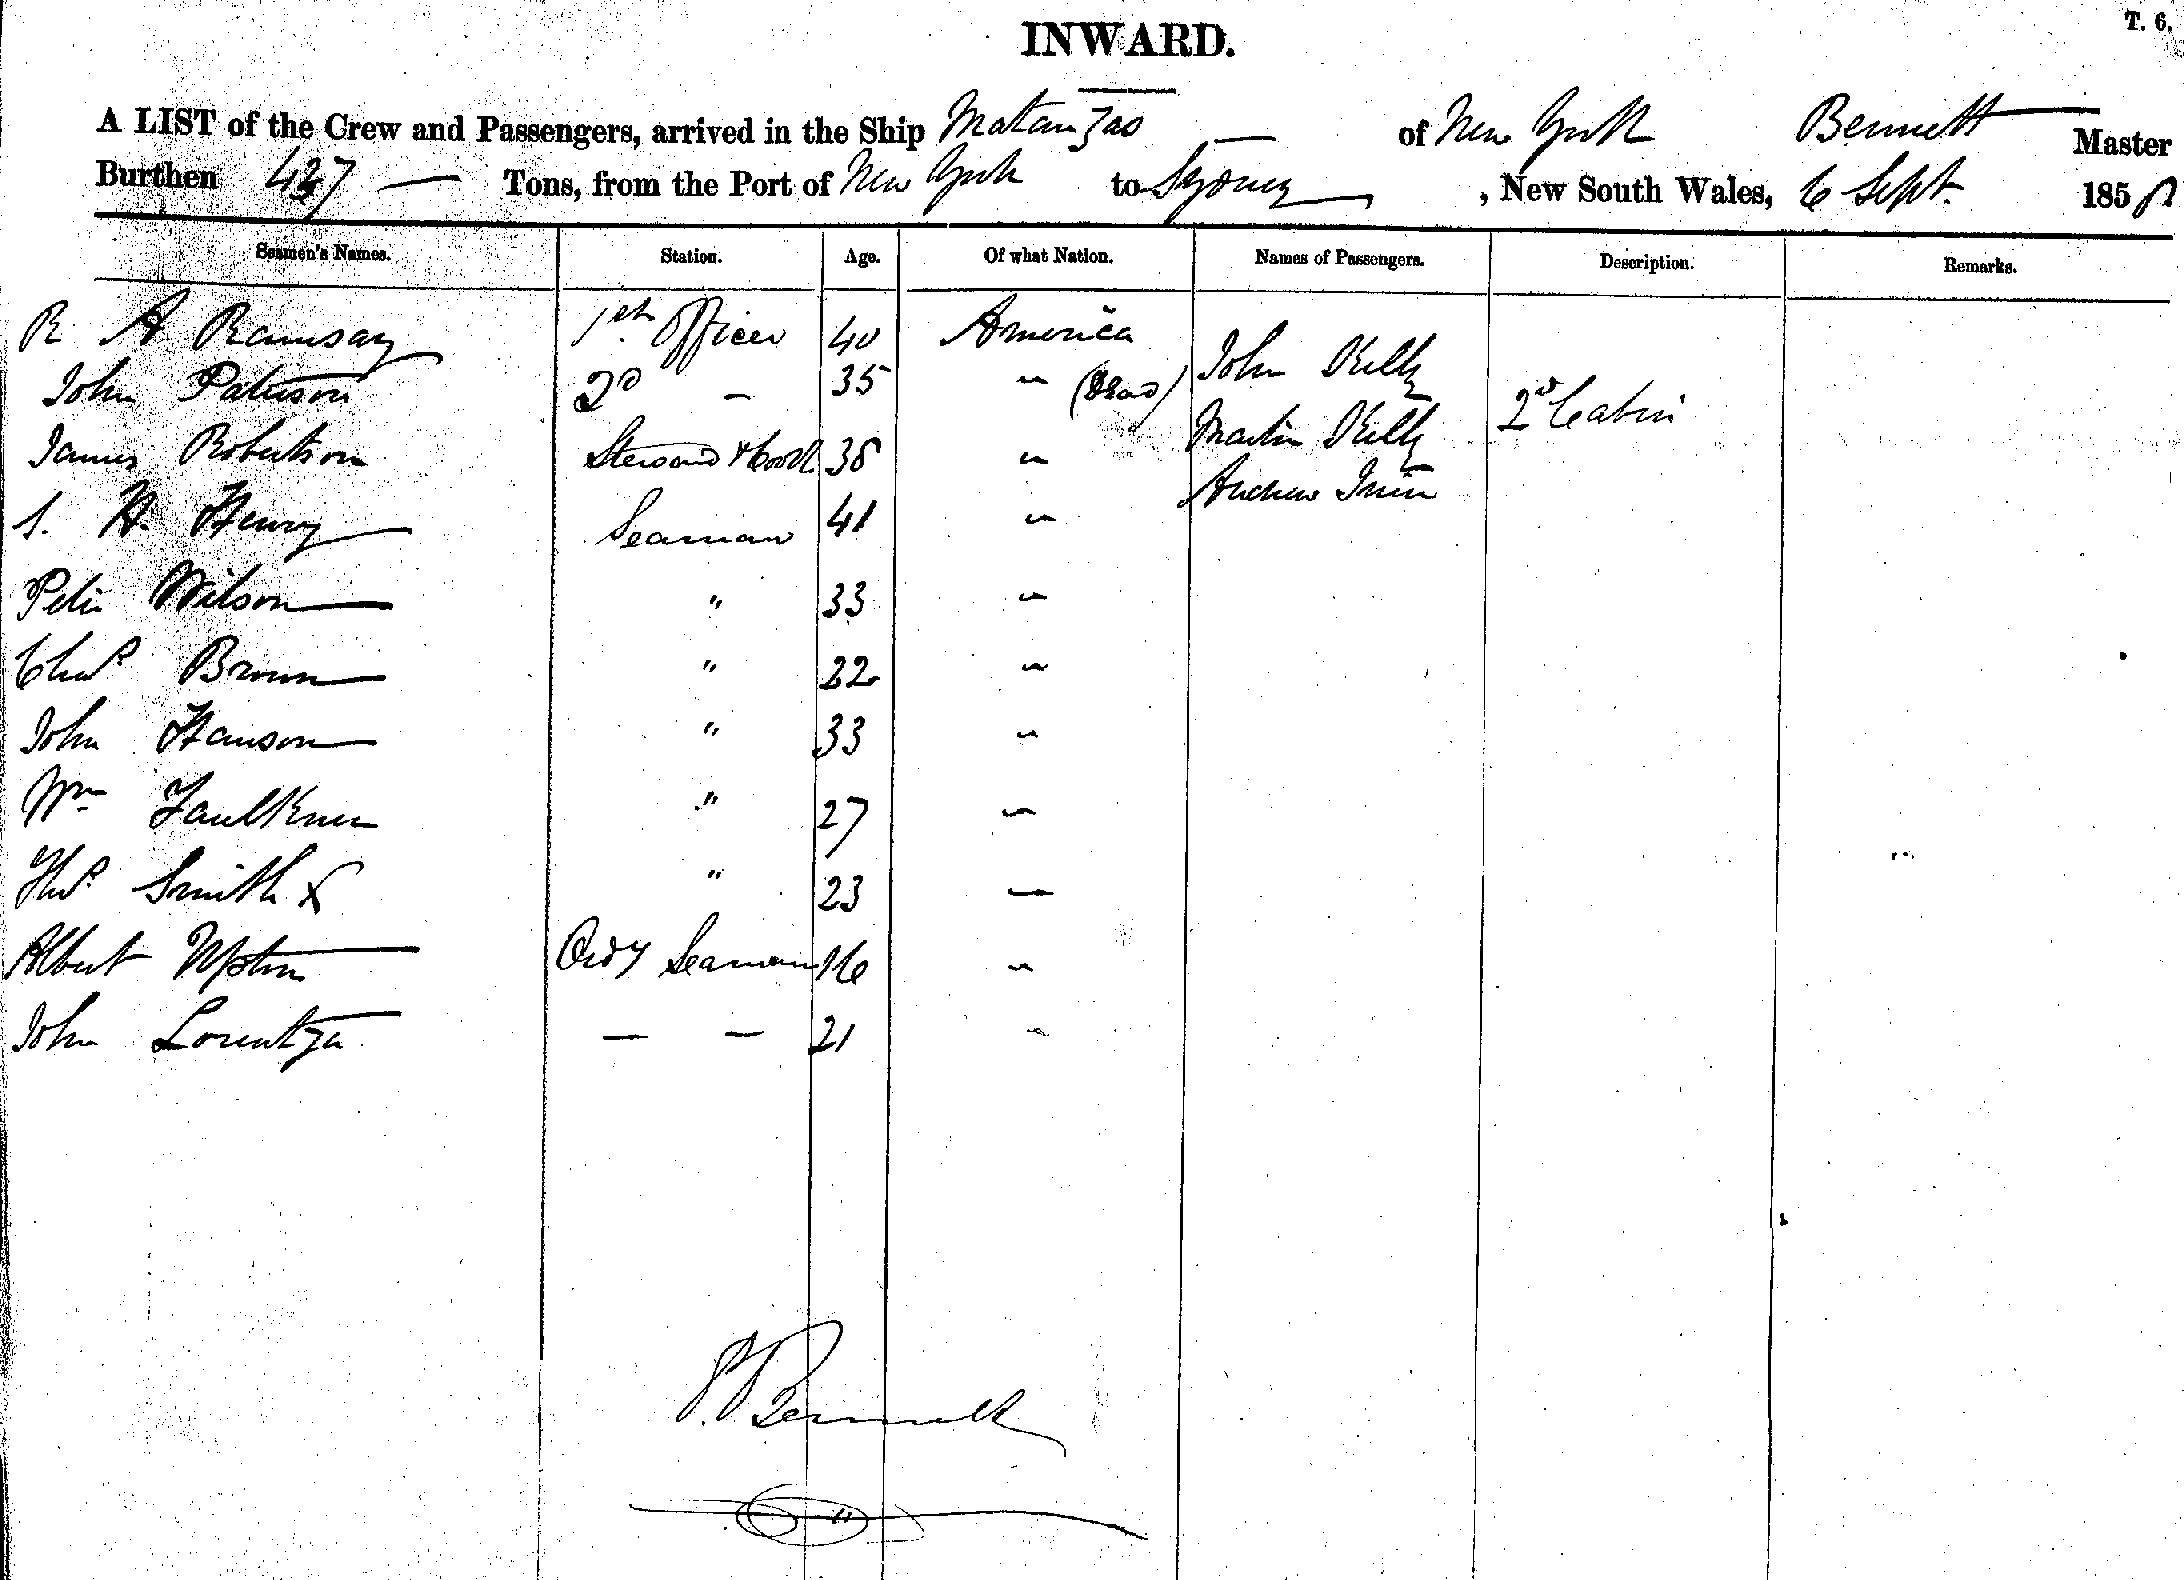 T. 6.
INWARD.
A LIST of the Crew and Passengers, arrived in the Ship Matanzas of New York Bennett Master
Burthen 437 Tons, from the Port of New York to Sydney, New South Wales, 6 Sept. 1858
Seamen's Names. Station. Age. Of what Nation. Names of Passengers. Description. Remarks.
R A Ramsay 1st Officer 40 America John Kelly
John Paterson 2d - 35 " (Dead) Martin Kelly 2d Cabin
James Robertson Steward & Cook 38 " Andrew
S. H. Henry Seaman 41 "
Peter Wilson " 33 "
Chas Brown " 22 "
John Hanson " 33 "
Wm Faulkner " 27 "
Thos Smith x " 23 —
Albert Upton Ordy Seaman 16 "
John Lorentzen — — 21 "
Bennett